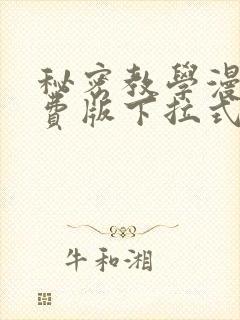 秘密教學漫
費版下拉式
牛和湘